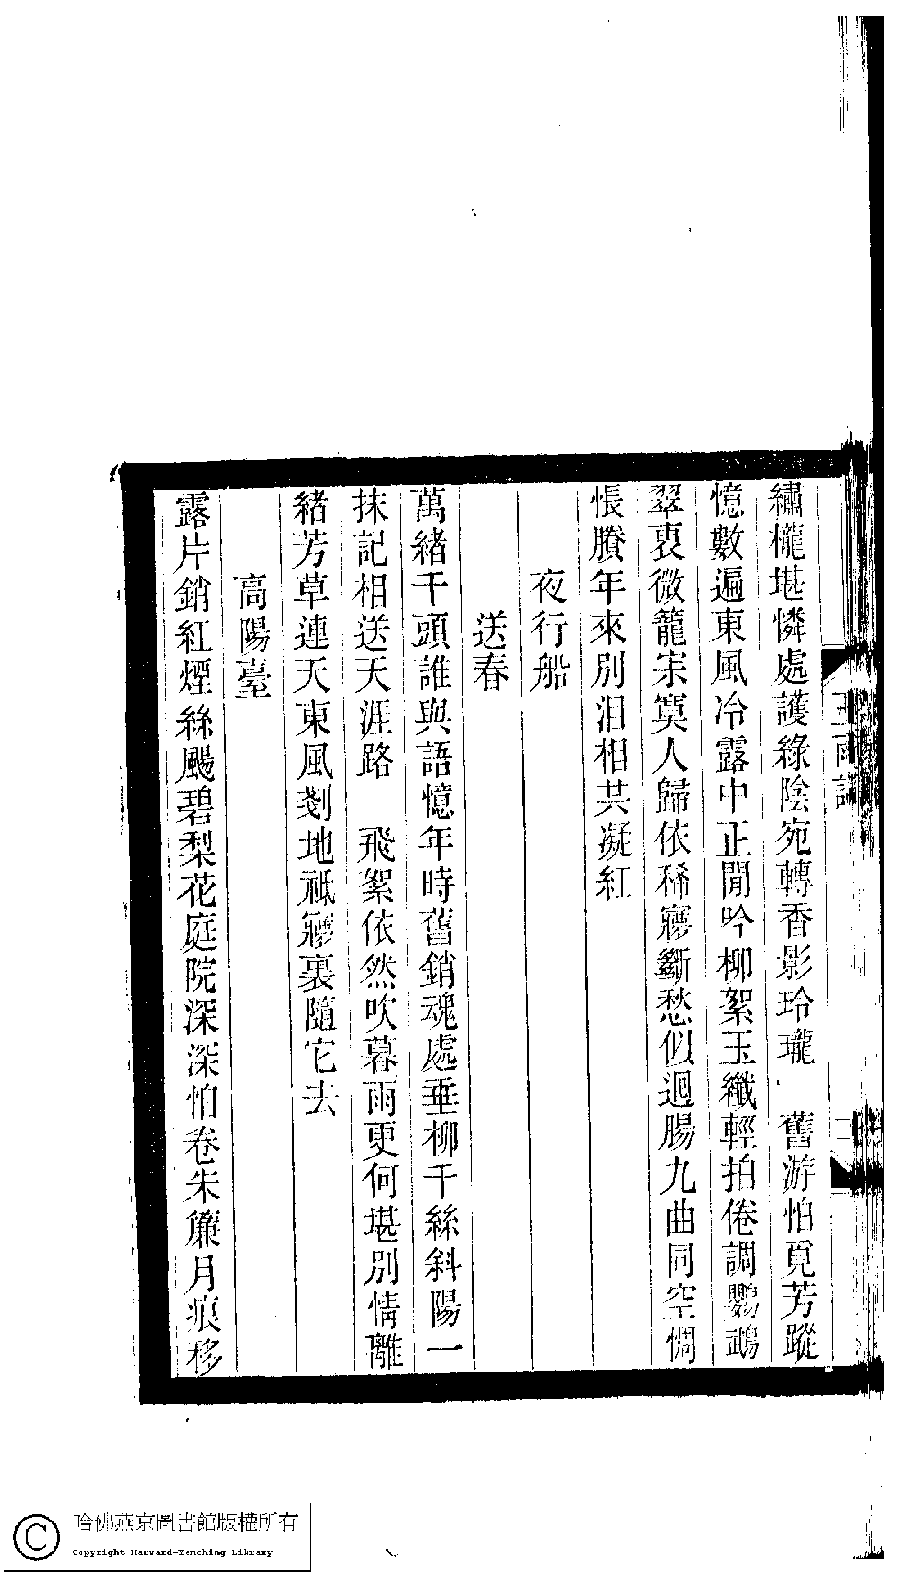 繡櫳堪憐處護綠陰宛轉香影玲瓏　舊游怕覓芳蹤
憶數遍東風冷露中正閒吟柳絮玉纖輕拍倦調鸚鵡
翠衷微籠宗寞人歸依稀寢斷愁似迴腸九曲同空惆
悵賸年來別淚相共凝紅
夜行船
送春
萬緒千頭誰與語憶年時舊銷魂處垂柳千絲斜陽一
抹記相送天涯路　飛絮依然吹暮雨更何堪別情離
緒芳草連天東風剗地祇寢裏隨它去
高陽臺
露片銷紅煙絲颺碧梨花庭院深深怕卷朱簾月痕移
哈佛燕京圖書館版權所有
Copyright Harvard-Yenching Library